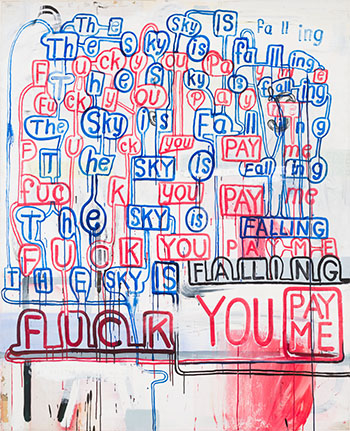 The Sky IS falling
The sky is falling
FUCk yoU Pay me
The sky is falling
FUck yOU Pay me
The Sky is Falling
FUck you PAY me
The SKY is Falling
fuc K you PAY me
The SKY is FALLING
FUCK YOU PAY ME
THE SKY IS FALLING
FUCK YOU PAY ME